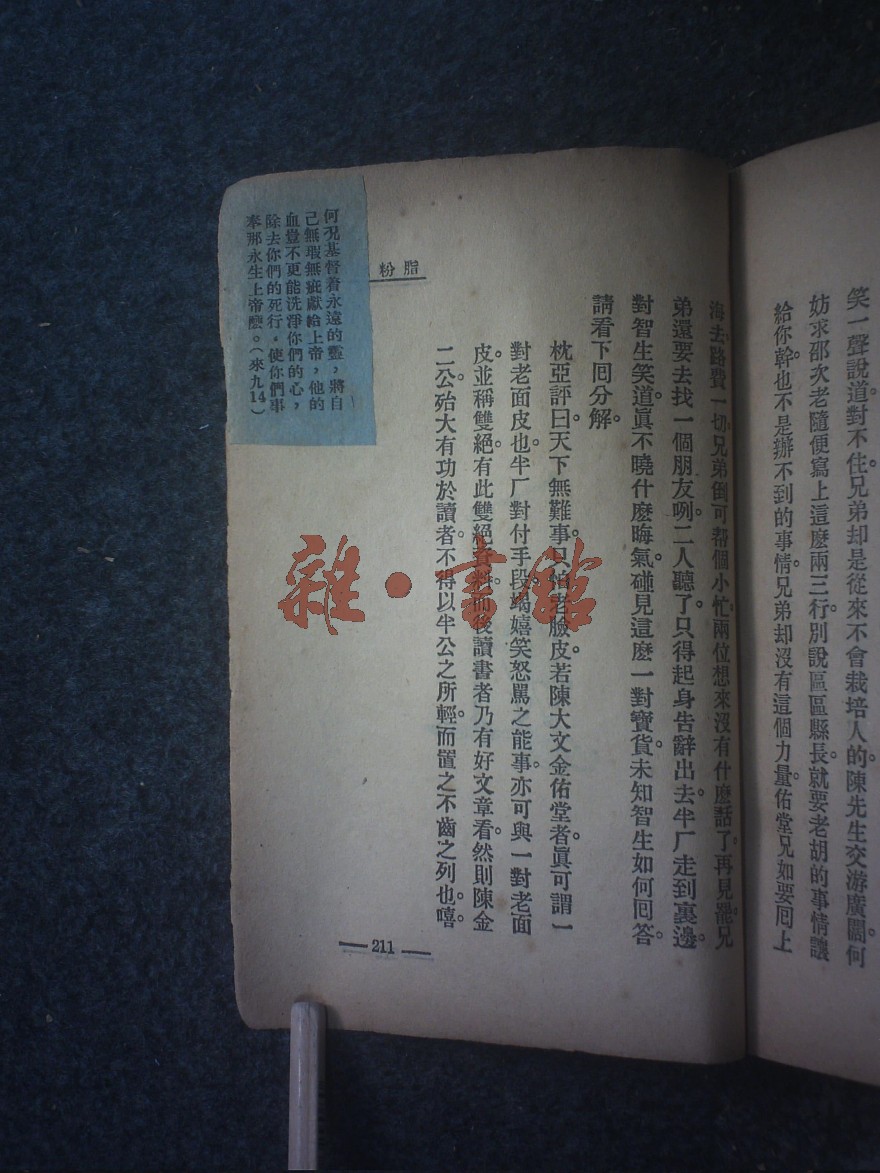 笑一聲說道對不住。兄弟却是從來不會栽培人的。陳先生交游廣闊。何
妨求邵次老隨便寫上這麽兩三行。別說區區縣長。就要老胡的事情讓
給你幹。也不是辦不到的事情。兄弟却沒有這個力量。佑堂兄如要囘上
海去。路費一切。兄弟倒可帮個小忙。兩位想來沒有什麽話了。再見罷。兄
弟還要去找一個朋友咧。二人聽了。只得起身告辭出去。半厂走到裏邊。
對智生笑道。眞不曉什麽晦氣。碰見這麽一對寶貨。未知智生如何囘答。
請看下囘分解。
枕亞評曰。天下無難事。只怕老臉皮。若陳大文金佑堂者。眞可謂一
對老面皮也。半厂對付手段。竭嬉笑怒罵之能事。亦可與一對老面
皮。並稱雙絕。有此雙絕資料。而後讀書者乃有好文章看。然則陳金
二公。殆大有功於讀者。不得以半公之所輕。而置之不齒之列也。嘻。
脂粉
211
何况基督着永遠的靈，將自
己無瑕無疵獻給上帝，他的
血豈不更能洗淨你們的心，
除去你們的死行，使你們事
奉那永生上帝麽。(來九14)
雜·書館